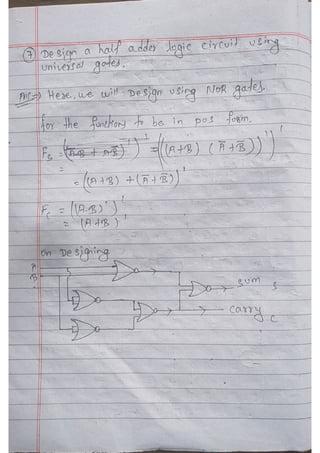 ⑦ Design a half adder logic circuit using
universal gates.
Ans:⇒ Here, we will Design using NOR gates.
for the functions to be in pos form.
= ((A+B) + (Ā+B̄))'
F_c = ((A·B)')'
on Designing
A
B
sum S
carry C